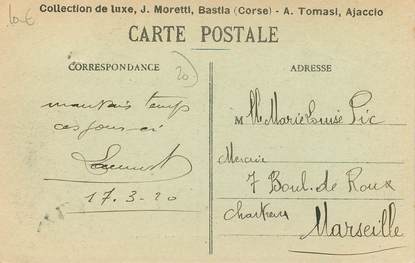 Collection de luxe, J. Moretti, Bastia (Corse) - A. Tomasi, Ajaccio
CARTE POSTALE
CORRESPONDANCE
ADRESSE
20
mauvais temps
ces jours-ci
17-3-20
M lle Marie Louise Pic
Mercerie
7 Boul. de Roux
Chartreux
Marseille